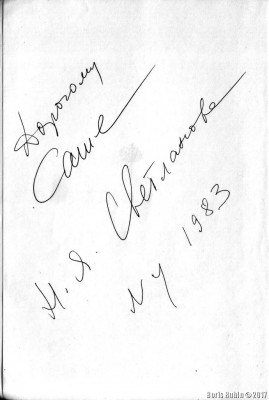 Дорогому
Саше
Светланова
Н. Я.
NY 1983
Boris Rubin ©2017